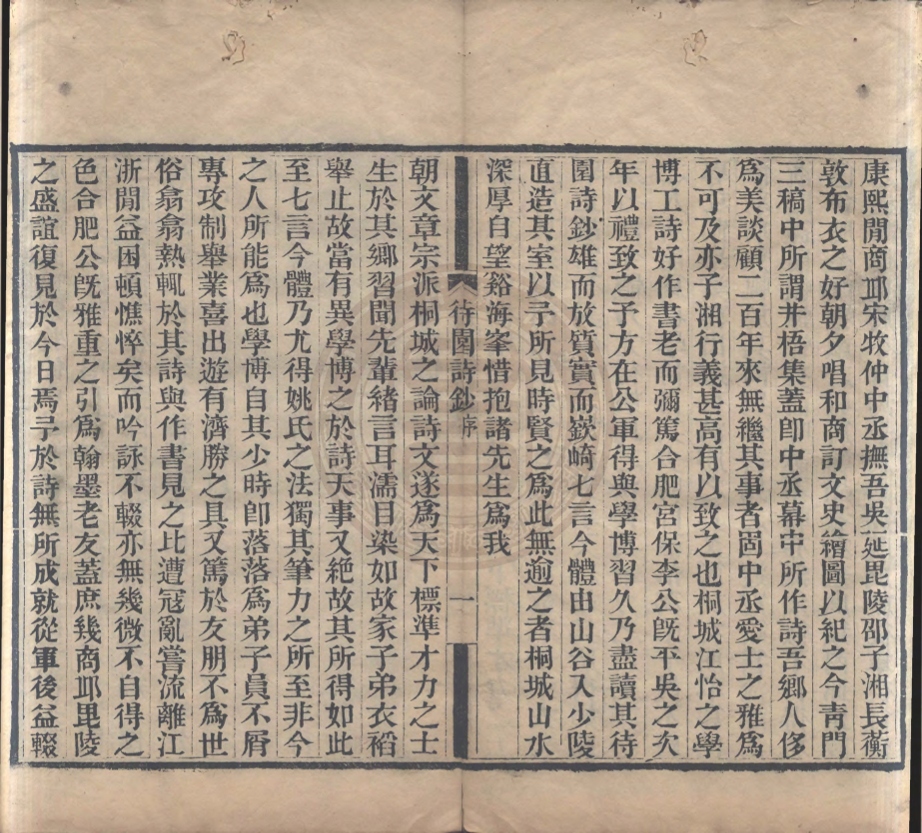 康熙閒商邱宋牧仲中丞撫吾吳延毘陵邵子湘長蘅
敦布衣之好朝夕唱和商訂文史繪圖以紀之今靑門
三稿中所謂井梧集蓋卽中丞幕中所作詩吾鄉人侈
爲美談顧二百年來無繼其事者固中丞愛士之雅爲
不可及亦子湘行義甚高有以致之也桐城江怡之學
博工詩好作書老而彌篤合肥宮保李公旣平吳之次
年以禮致之予方在公軍得與學博習久乃盡讀其待
園詩鈔雄而放質實而嶔崎七言今體由山谷入少陵
直造其室以予所見時賢之爲此無逾之者桐城山水
深厚自望谿海峯惜抱諸先生爲我
待園詩鈔序
一
朝文章宗派桐城之論詩文遂爲天下標準才力之士
生於其鄉習聞先輩緒言耳濡目染如故家子弟衣裪
舉止故當有異學博之於詩天事又絶故其所得如此
至七言今體乃尤得姚氏之法獨其筆力之所至非今
之人所能爲也學博自其少時卽落落爲弟子員不屑
專攻制舉業喜出遊有濟勝之具又篤於友朋不爲世
俗翕翕熱輒於其詩與作書見之比遭寇亂嘗流離江
浙閒益困頓憔悴矣而吟詠不輟亦無幾微不自得之
色合肥公旣雅重之引爲翰墨老友蓋庶幾商邱毘陵
之盛誼復見於今日焉予於詩無所成就從軍後益輟